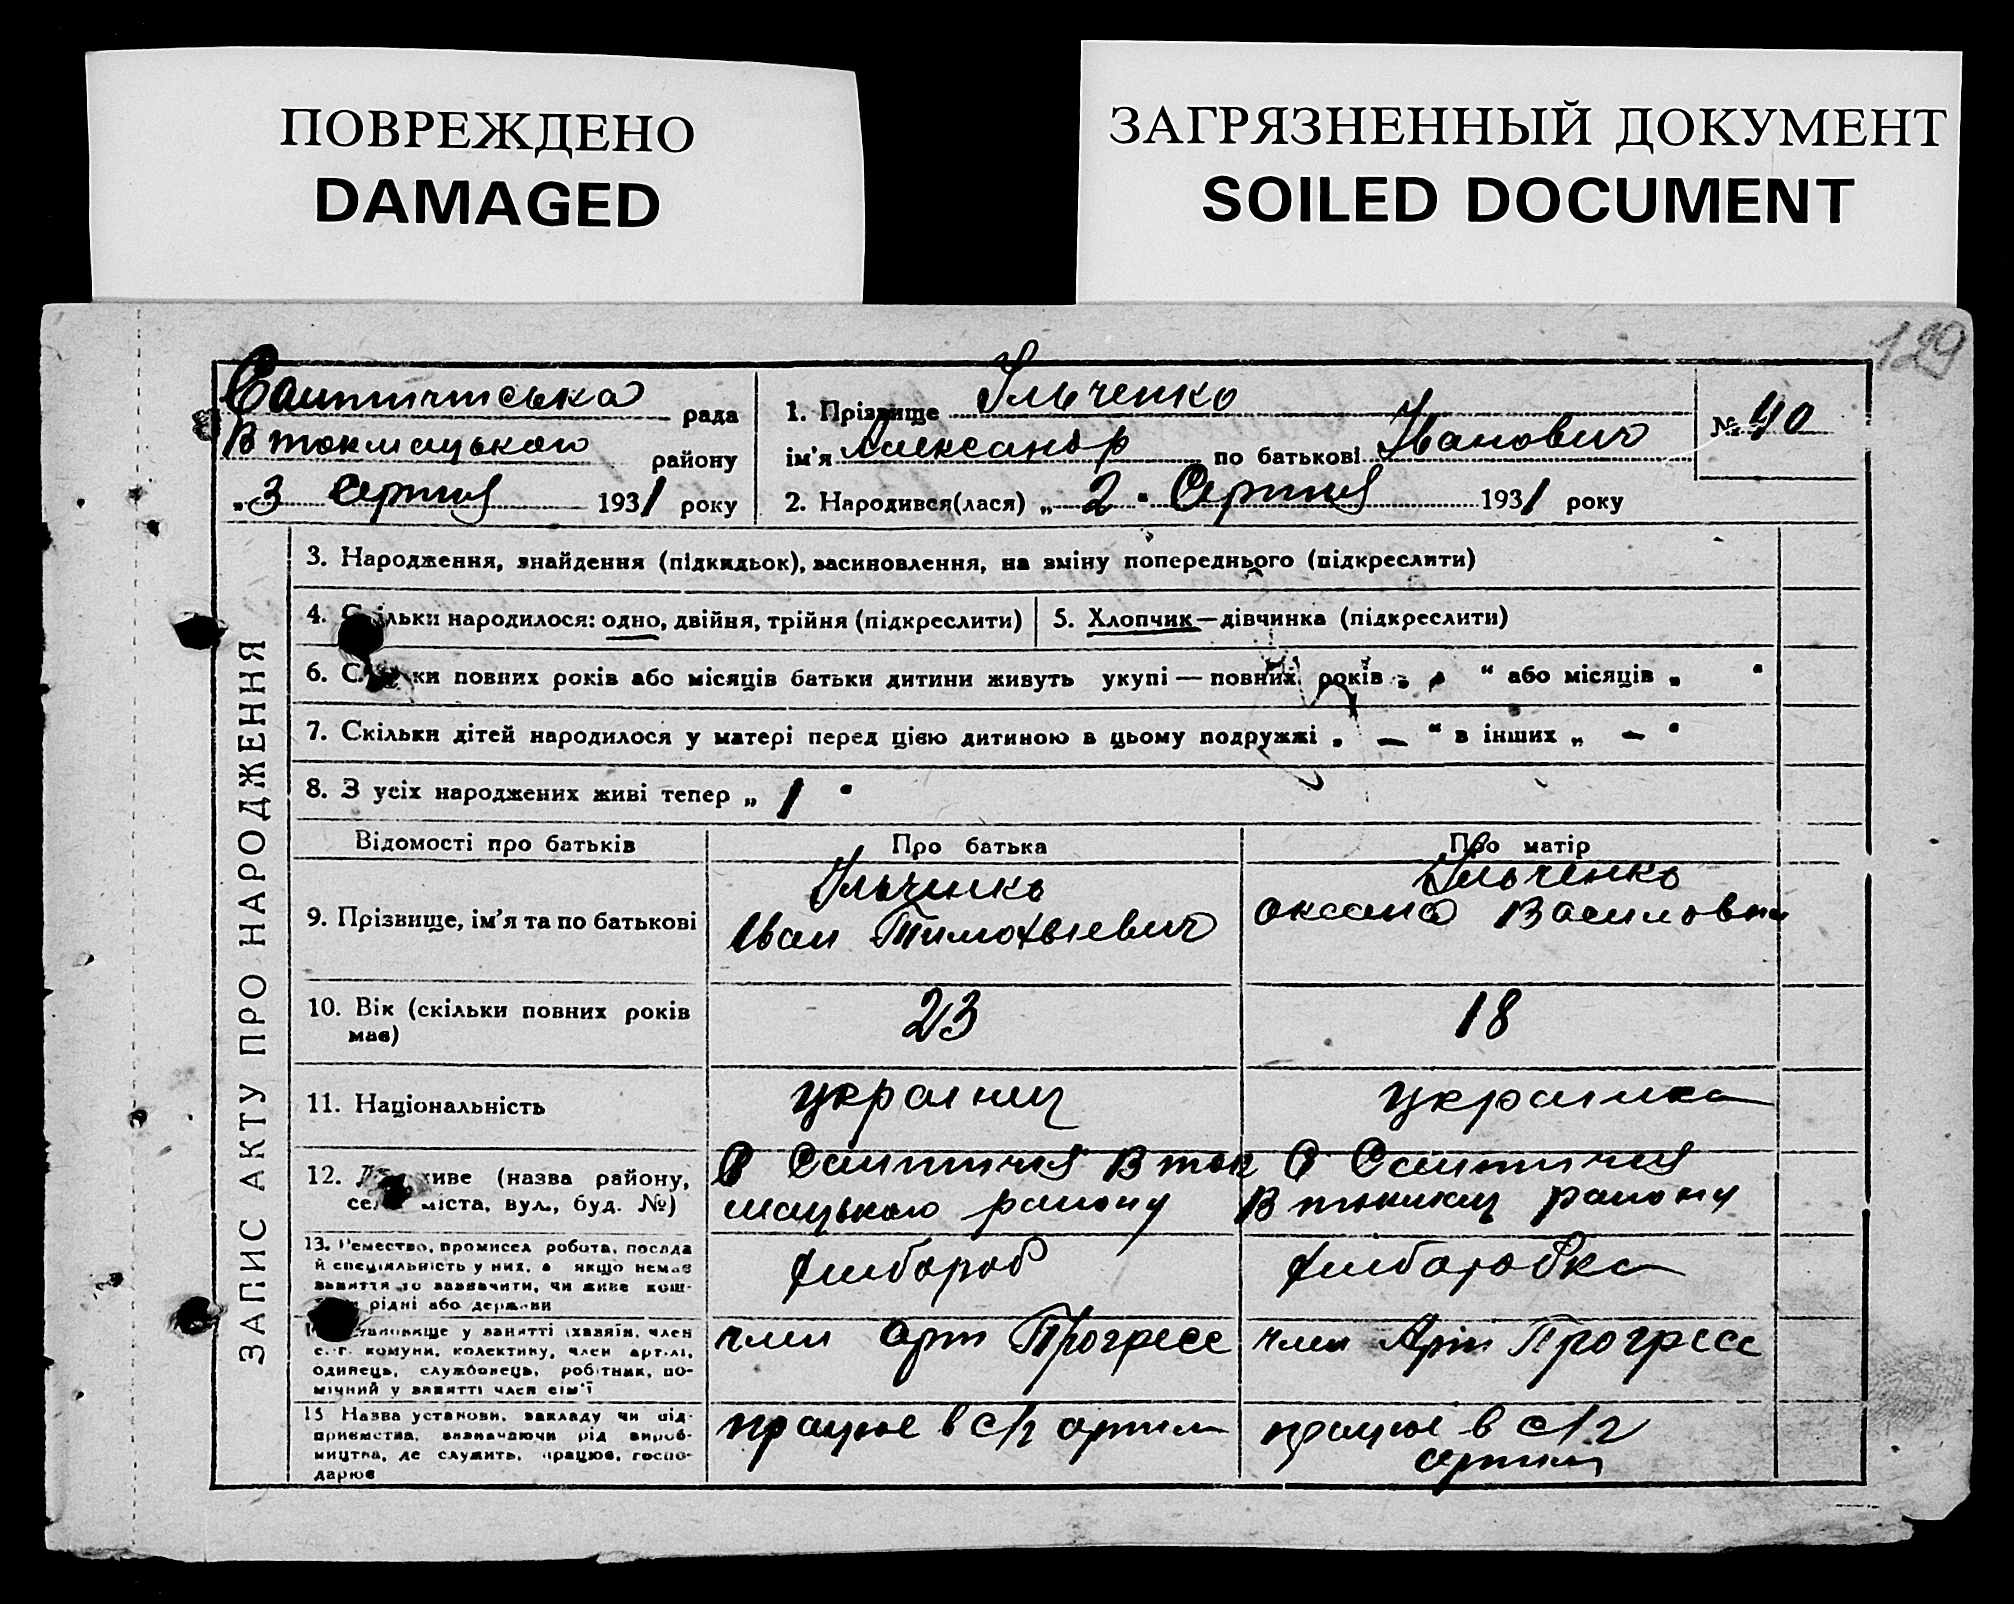 ПОВРЕЖДЕНО
DAMAGED
ЗАГРЯЗНЕННЫЙ ДОКУМЕНТ
SOILED DOCUMENT
129
рада
В токмацького району
„ 3 Серпня 1931 року
1. Прізвище Ільченко
ім'я Александр по батькові Іванович
№ 40
2. Народився(лася) „ 2 " Серпня 1931 року
ЗАПИС АКТУ ПРО НАРОДЖЕННЯ
3. Народження, знайдення (підкидьок), васиновлення, на зміну попереднього (підкреслити)
4. Скільки народилося: одно, двійня, трійня (підкреслити)
5. Хлопчик—дівчинка (підкреслити)
6. Скільки повних років або місяців батьки дитини живуть укупі — повних років „ “ або місяців „ “
7. Скільки дітей народилося у матері перед цією дитиною в цьому подружжі „ — “ в інших „ — “
8. З усіх народжених живі тепер „ 1 “
Відомості про батьків
Про батька
Про матір
9. Прізвище, ім'я та по батькові
Ільченко
Іван Тимохвієвич
Ільченко
Оксана Василовна
10. Вік (скільки повних років
має)
23
18
11. Національність
українец
українка
12. Де живе (назва району,
село міста, вул., буд. №)
С В ток
мацького району
С
В токмац району
13. Ремество, промисел робота, посада
й спеціяльність у них, а якщо немає
заняття то зазначити, чи живе кош-
рідні або держави
хлібороб
хліборобка
14. Становище у занятті (хазяїн, член
с.-г. комуни, колективу, член артілі,
одинець, службовець, робітник, по-
мічний у занятті член сім'ї
член арт Прогресс
член Арт Прогресс
15 Назва установи, закладу чи під-
приємства, визначаючи рід вироб-
ництва, де служить, працює, госпо-
дарює
працює в с/г артили
працює в с/г
артили